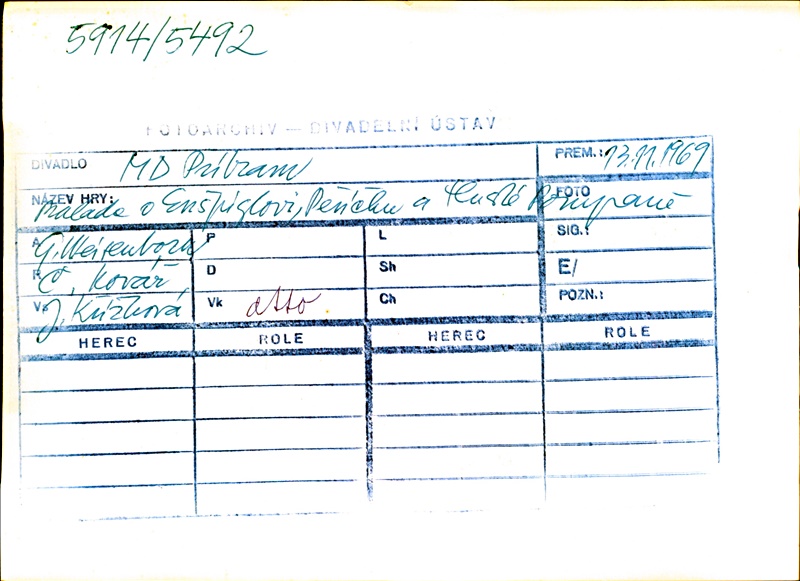 5914/5492
FOTOARCHIV — DIVADELNÍ ÚSTAV
DIVADLO MD Příbram PREM.: 13.11.1969
NÁZEV HRY: Balada o Enšpíglovi, Pepíčku a tlusté Pompaně FOTO
A G. Weisenborn P L SIG.:
R Č. Kovář, D Sh E/
V. J. Křížková Vk otto Ch POZN.:
HEREC ROLE HEREC ROLE